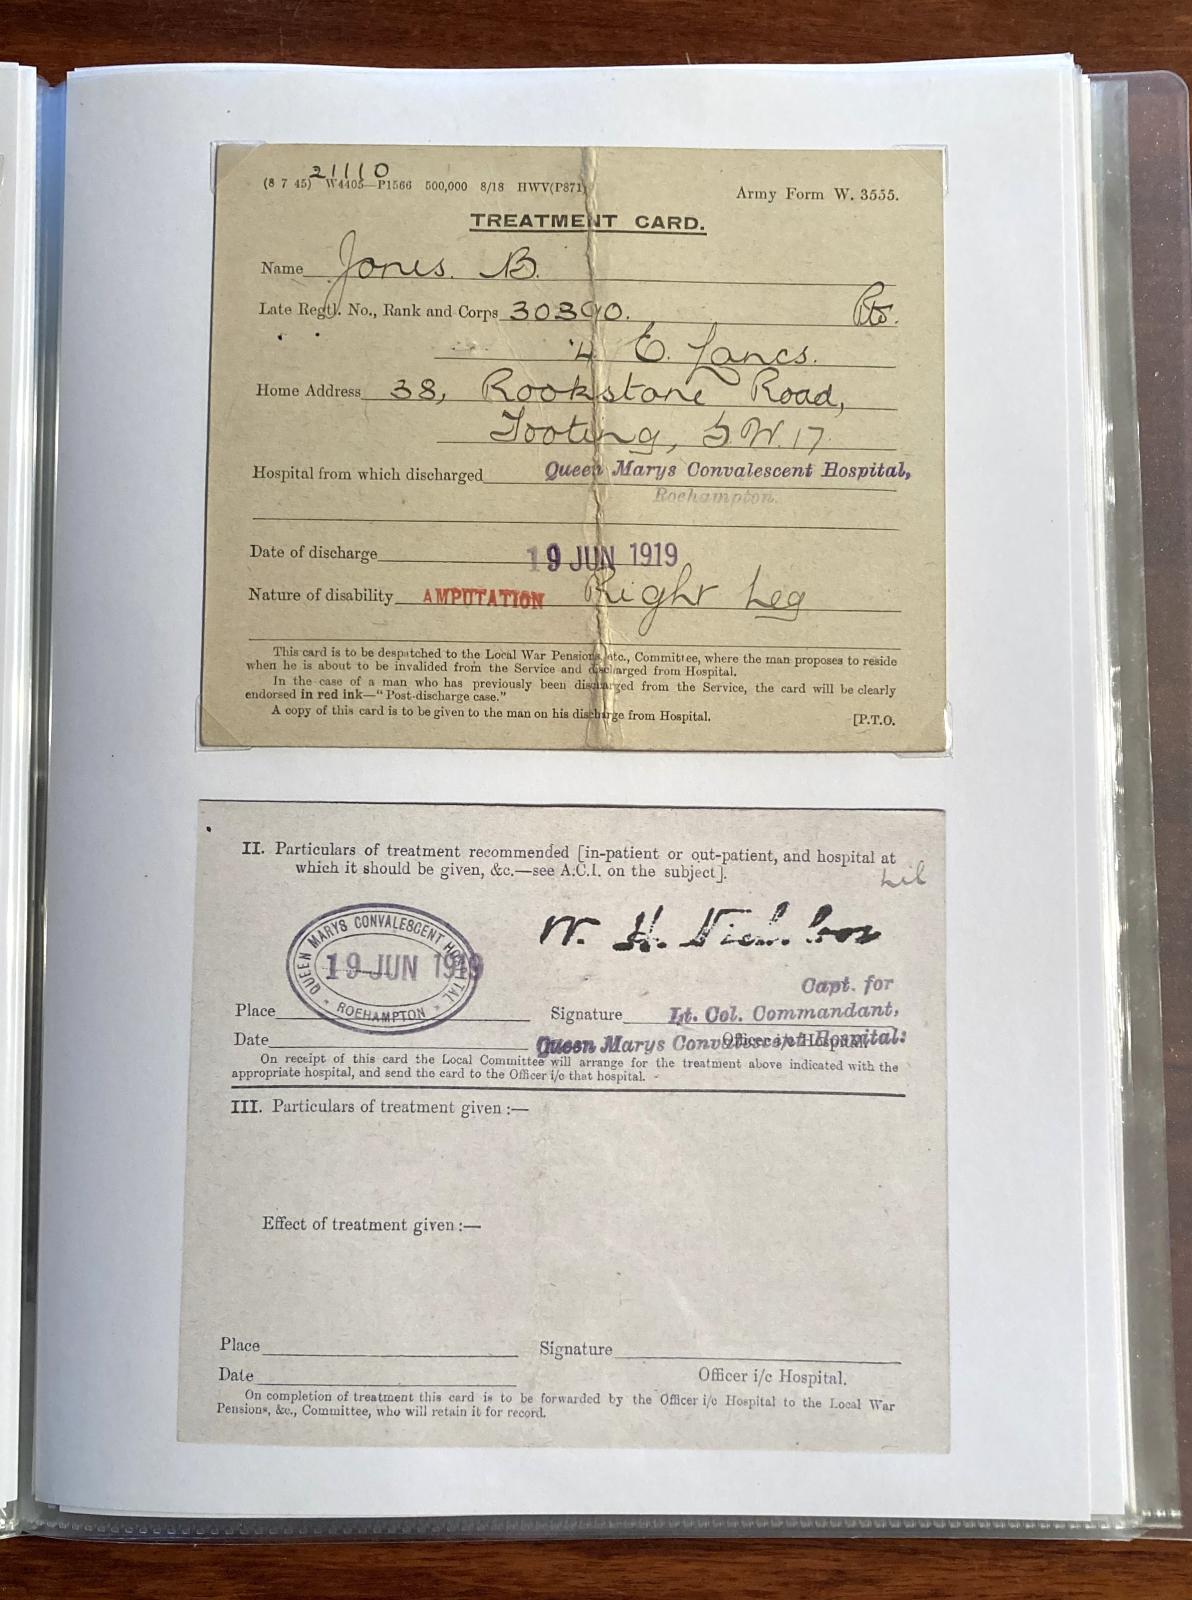 21110
(8 7 45) W4405—P1566 500,000 8/18 HWV(P871)
Army Form W. 3555.
TREATMENT CARD.
Name Jones. B.
Late Regtl. No., Rank and Corps 30390. Pte.
4 E. Lancs.
Home Address 38, Rookstone Road,
Tooting, S.W.17.
Hospital from which discharged Queen Marys Convalescent Hospital,
Roehampton.
Date of discharge 19 JUN 1919
Nature of disability AMPUTATION Right Leg
This card is to be despatched to the Local War Pensions, etc., Committee, where the man proposes to reside
when he is about to be invalided from the Service and discharged from Hospital.
In the case of a man who has previously been discharged from the Service, the card will be clearly
endorsed in red ink—“Post-discharge case.”
A copy of this card is to be given to the man on his discharge from Hospital.
[P.T.O.
II. Particulars of treatment recommended [in-patient or out-patient, and hospital at
which it should be given, &c.—see A.C.I. on the subject].
W. H. Nicholson
QUEEN MARYS CONVALESCENT HOSPITAL
19 JUN 1919
* ROEHAMPTON *
Capt. for
Place
Signature Lt. Col. Commandant,
Date
Queen Marys Convalescent Hospital:
Officer i/c Hospital.
On receipt of this card the Local Committee will arrange for the treatment above indicated with the
appropriate hospital, and send the card to the Officer i/c that hospital.
III. Particulars of treatment given :—
Effect of treatment given :—
Place Signature
Date Officer i/c Hospital.
On completion of treatment this card is to be forwarded by the Officer i/c Hospital to the Local War
Pensions, &c., Committee, who will retain it for record.